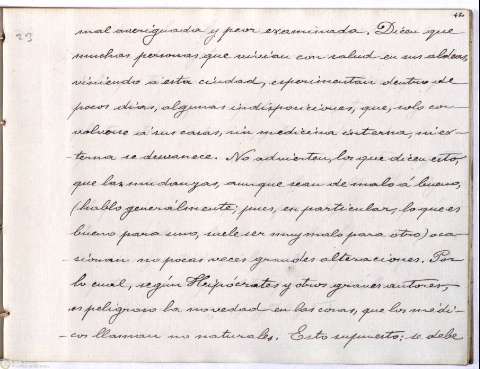 42.
23
mal averiguada y peor examinada. Dicen que
muchas personas que vivian con salud en sus aldeas,
viniendo á esta ciudad, esperimentan dentro de
pocos dias, algunas indisposiciones, que, solo con
volverse á sus casas, sin medicina interna, ni ex-
-terna se desvanece. No advierten, los que dicen esto,
que las mudanzas, aunque sean de malo á bueno,
(hablo generalmente; pues, en particular, lo que es
bueno para uno, suele ser muy malo para otro) oca-
-sionan no pocas veces grandes alteraciones. Por
lo cual, según Heipócrates y otros graves autores,
es peligroso la novedad en las cosas, que los médi-
-cos llaman no naturales. Esto supuesto; se debe